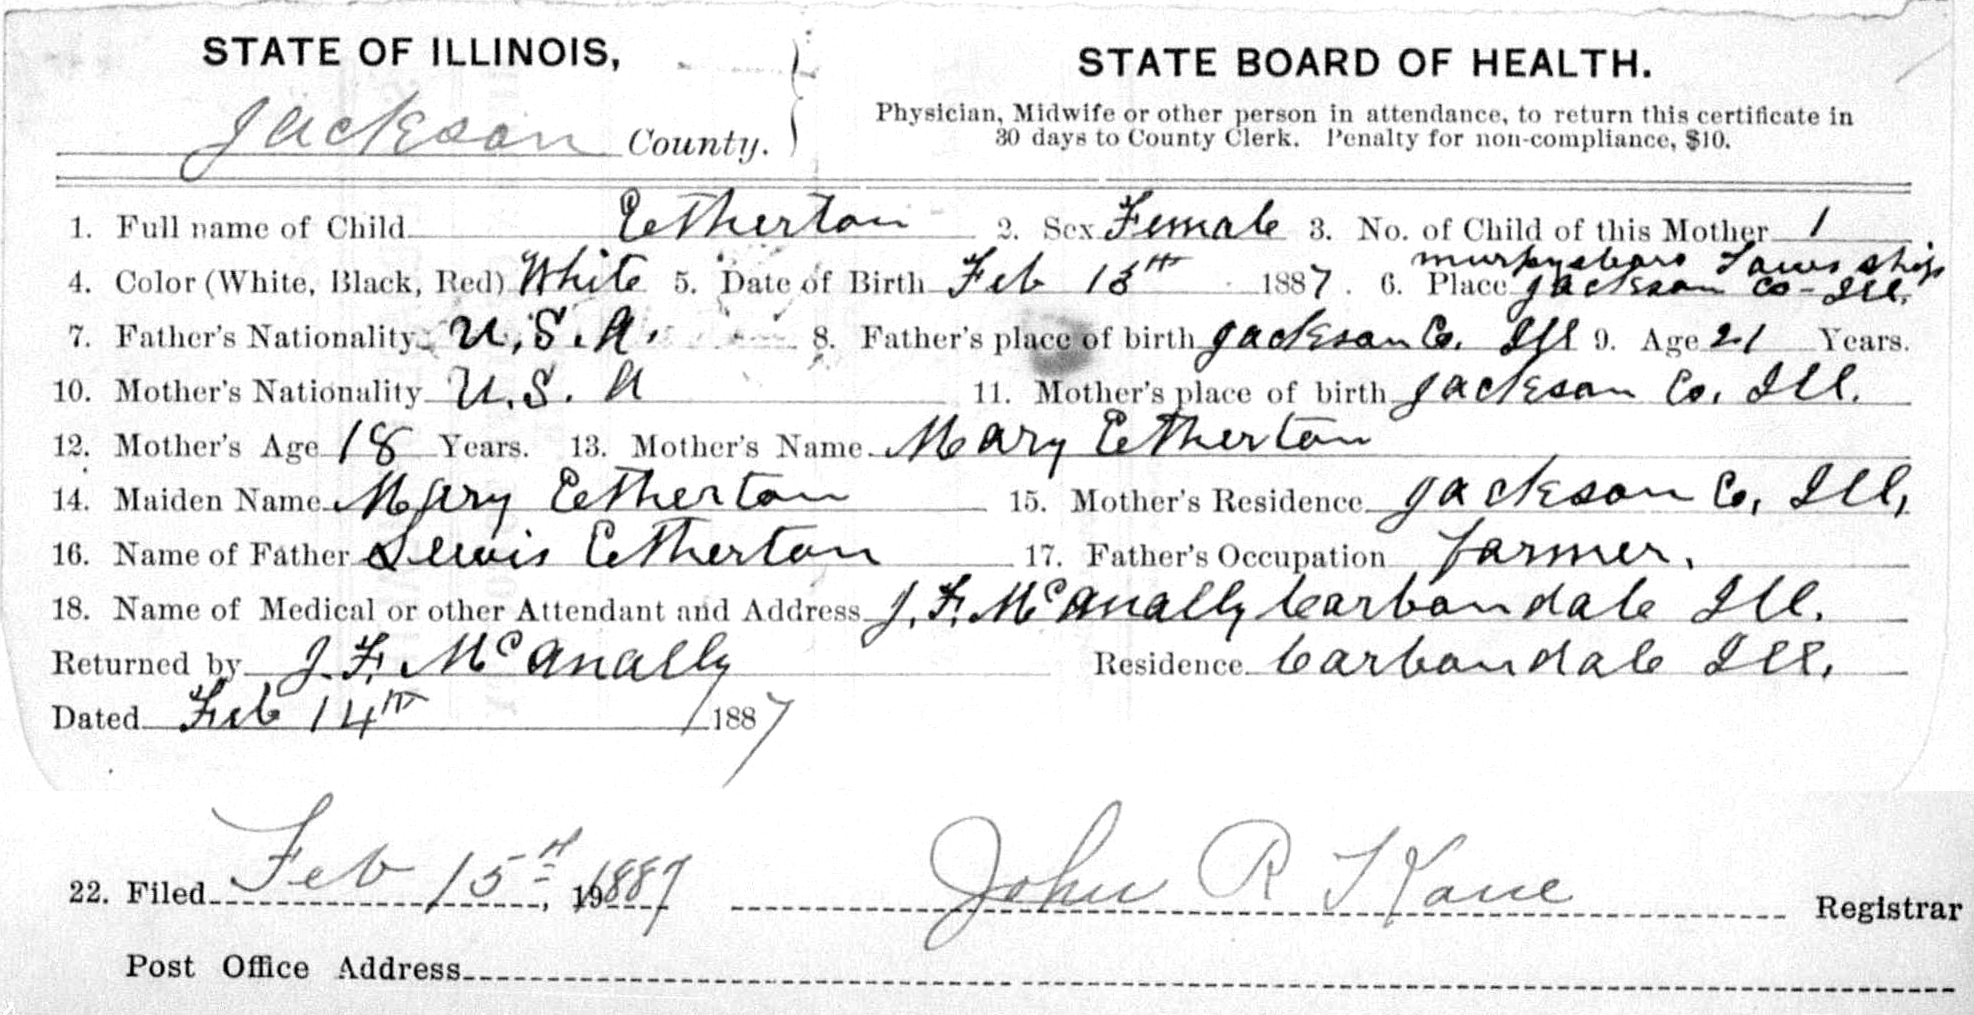 STATE OF ILLINOIS,
Jackson County.
STATE BOARD OF HEALTH.
Physician, Midwife or other person in attendance, to return this certificate in
30 days to County Clerk. Penalty for non-compliance, $10.
1. Full name of Child Etherton 2. Sex Female 3. No. of Child of this Mother 1
murphysboro Township
4. Color (White, Black, Red) White 5. Date of Birth Feb 13th 1887. 6. Place Jackson Co - Ill.
7. Father's Nationality U.S.A. 8. Father's place of birth Jackson Co. Ill 9. Age 21 Years.
10. Mother's Nationality U.S.A 11. Mother's place of birth Jackson Co. Ill.
12. Mother's Age 18 Years. 13. Mother's Name Mary Etherton
14. Maiden Name Mary Etherton 15. Mother's Residence Jackson Co, Ill,
16. Name of Father Lewis Etherton 17. Father's Occupation farmer.
18. Name of Medical or other Attendant and Address J. F. McAnally Carbondale Ill.
Returned by J. F. McAnally Residence Carbondale Ill.
Dated Feb 14th 1887
22. Filed Feb 15th, 1887 John R Registrar
Post Office Address